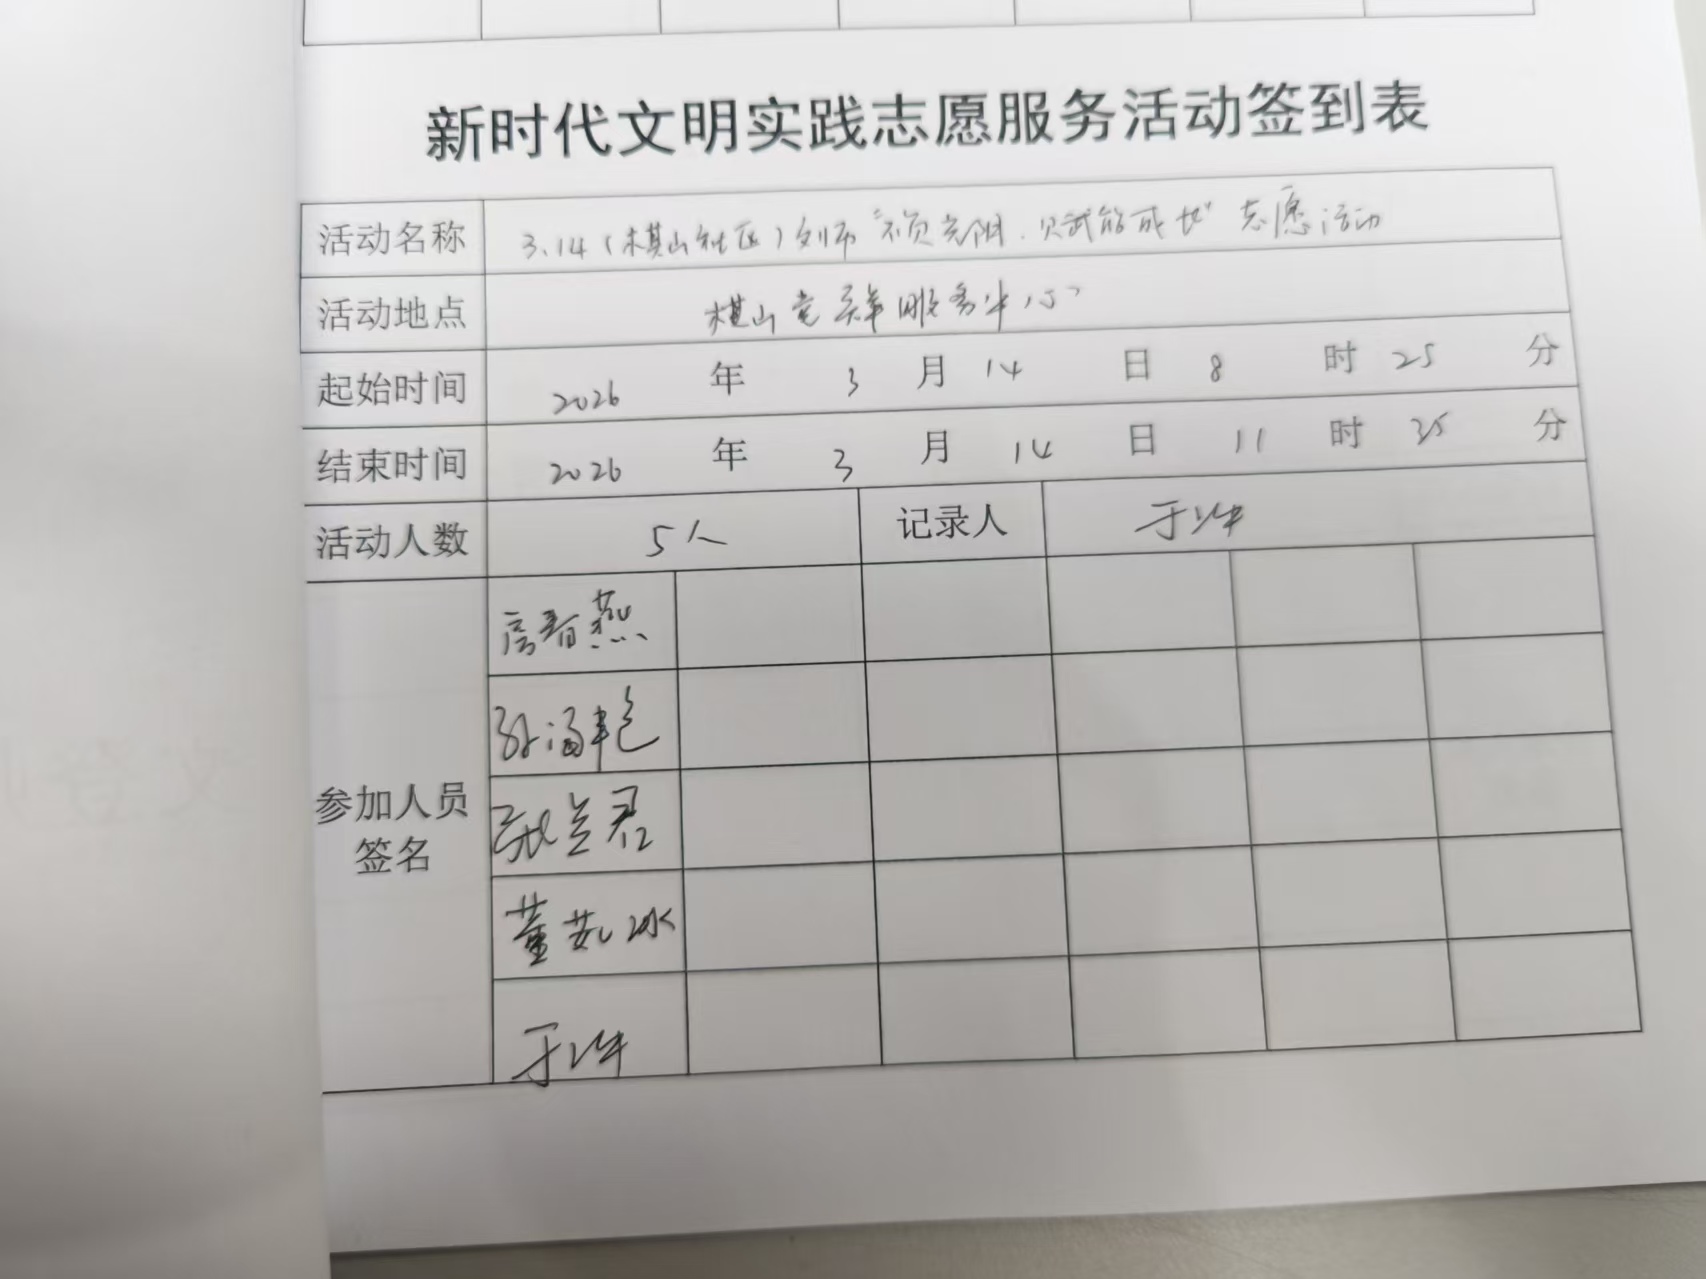 新时代文明实践志愿服务活动签到表
活动名称 3.14(棋山社区) "不负光阴.赋能成长" 志愿活动
活动地点 棋山党群服务中心
起始时间 2026 年 3 月 14 日 8 时 25 分
结束时间 2026 年 3 月 14 日 11 时 25 分
活动人数 5人 记录人 于
参加人员签名
高春燕
孙海艳
张兰君
董茹冰
于